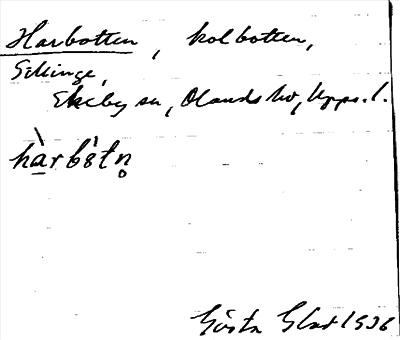 Harbotten, kolbotten,
Gillinge,
Ekeby sn, Olands hd, Upps. l.
hàrbòtn̥
Gösta Glad 1936